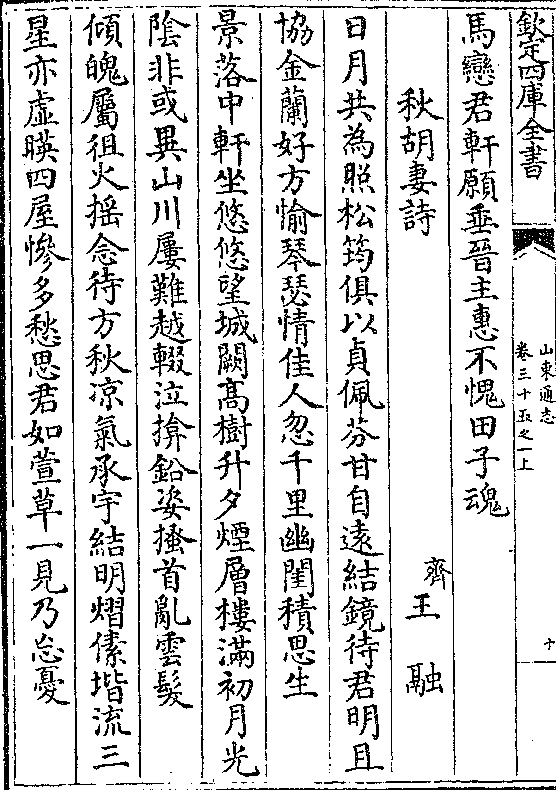 欽定四庫全書
山東通志
卷三十五之一上
十
馬戀君軒願垂晉主惠不愧田子魂
秋胡妻詩
齊 王融
日月共為照松筠俱以貞佩芬甘自遠結鏡待君明且
協金蘭好方愉琴瑟情佳人忽千里幽閨積思生
景落中軒坐悠悠望城闕高樹升夕煙層樓滿初月光
陰非或異山川屢難越輟泣揜鉛姿搔首亂雲髮
傾魄屬徂火摇念待方秋凉氣承宇結明熠傃堦流三
星亦虛暎四屋慘多愁思君如萱草一見乃忘憂